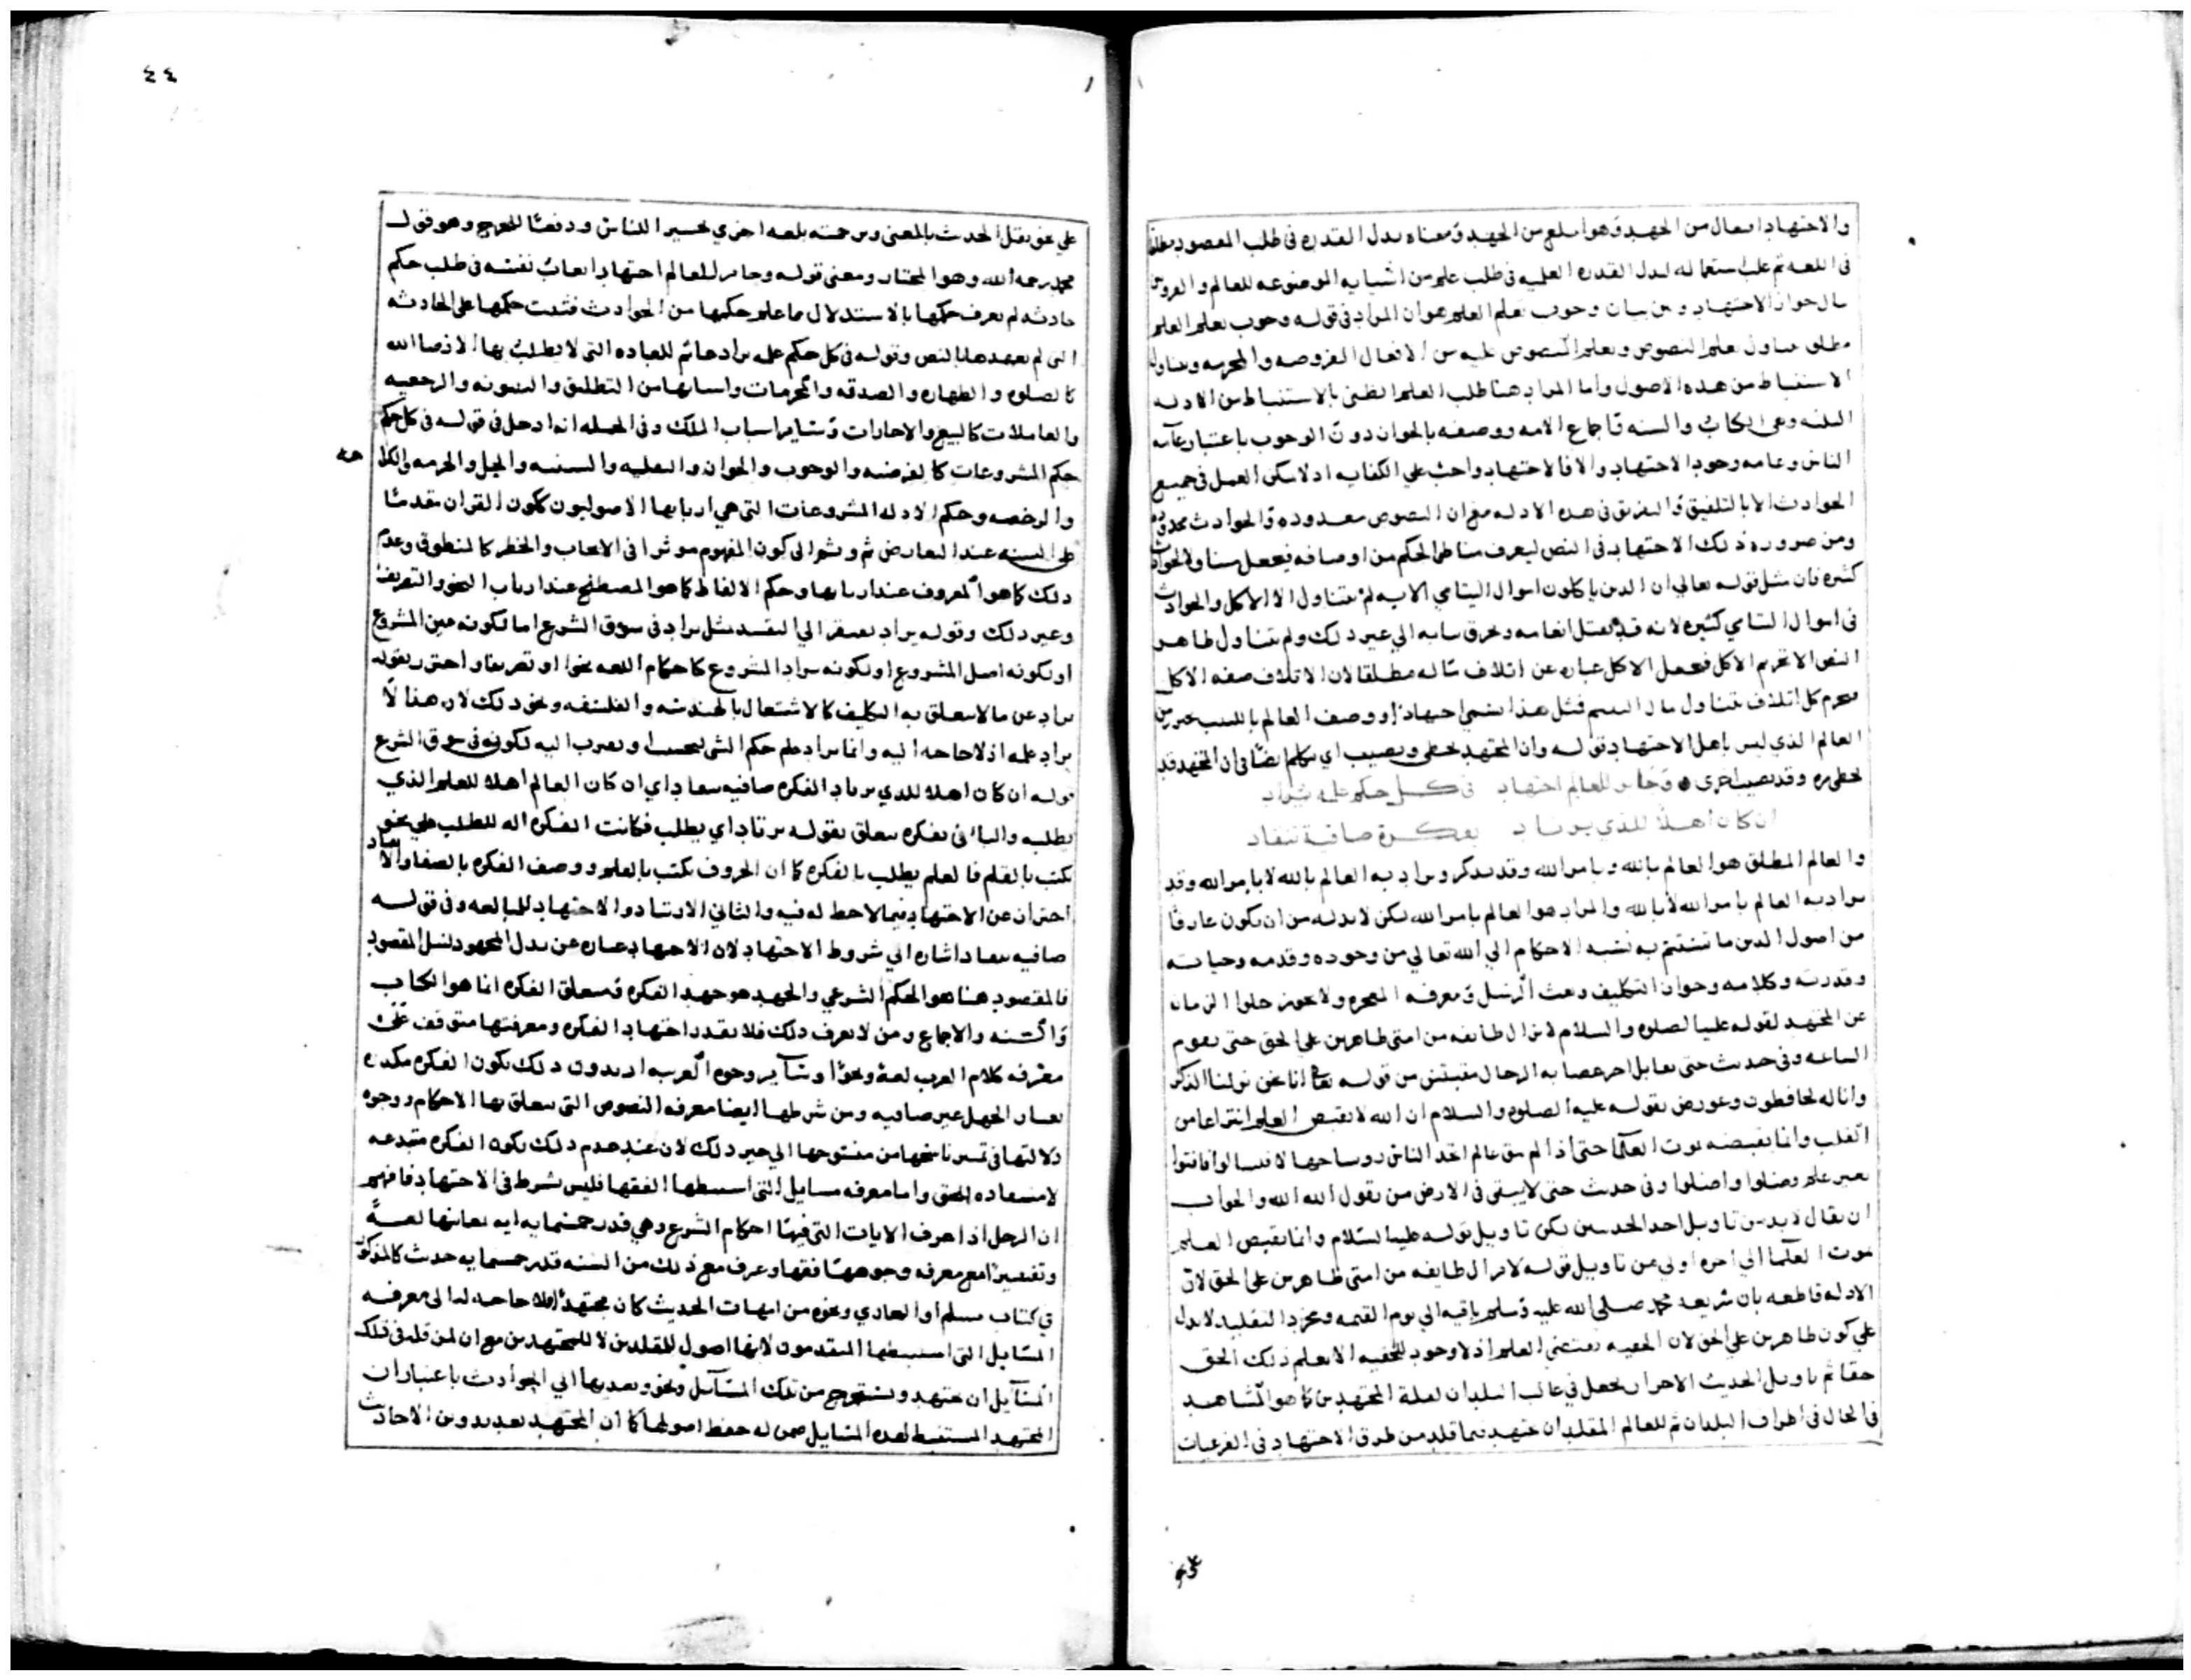 والاجتهاد افتعال من الجهد وهو ابلغ من الجهد ومعناه بذل القدره فى طلب المقصود مطلقا
فى اللغه ثم غلب استعماله لبذل القدره العلميه فى طلب علم من اشبابه الموضوعه للعالم والفروع من
حال جواز الاجتهاد وعن بيان وجوب تعلم العلم هو ان المراد فى قوله وجوب تعلم العلم
مطلق تناول تعلم النصوص وتعلم المنصوص عليه من الافعال المفروضه والمحرمه وتناول
الاستنباط من هذه الاصول واما المراد هنا طلب العلم الظنى بالاستنباط من الادله
الثلثه وهى الكتاب والسنه واجماع الامه ووصفه بالجواز دون الوجوب باعتبار عآمه
الناس وعامه وجود الاجتهاد والا فالاجتهاد واجب علي الكفايه اذ لا يمكن العمل فى جميع
الحوادث الا بالتلفيق والتفريق فى هذه الادله مع ان النصوص معدوده والحوادث ممدوده
ومن ضروره ذلك الاجتهاد فى النص ليعرف مناط الحكم من اوصافه فيجعل متناولا لحوادث
كثيره فان مثل قوله تعالي ان الذين ياكلون اموال اليتامي الايه لم يتناول الا الاكل والحوادث
فى اموال اليتامي كثيره لانه قد يقتل انعامه ويخرق ثيابه الي غير ذلك ولم يتناول ظاهر
النص الا تحريم الاكل فجعل الاكل عباره عن اتلاف ماله مطلقا لان الاتلاف صفه الاكل
فيحرم كل اتلاف يتناول مال اليتيم فمثل هذا يسمي اجتهادا ووصف العالم باللبيب تحرز من
العالم الذي ليس باهل الاجتهاد قوله وان المجتهد يخطي ويصيب اي نكلم ايضا فى ان المجتهد قد
يخطي مره وقد يصيب اخرى وجاز للعالم اجتهاد فى كل حكم علمه يراد
ان كان اهلا للذي يرتاد بفكرة صافية تنقاد
والعالم المطلق هو العالم بالله وبامر الله وقد يذكر ويراد به العالم بالله لا بامر الله وقد
يراد به العالم بامر الله لا بالله والمراد هو العالم بامر الله لكن لا بد له من ان يكون عارفا
من اصول الدين ما تستقيم به نسبه الاحكام الي الله تعالي من وجوده وقدمه وحياته
وقدرته وكلامه وجواز التكليف وبعث الرسل ومعرفه المعجزه ولا يجوز خلوا الزمان
عن المجتهد لقوله عليه الصلوه والسلام لا تزال طايفه من امتى ظاهرين علي الحق حتى تقوم
الساعه وفى حديث حتى يقاتل اخر عصابه الدجال مقتبس من قوله تعالي انا نحن نزلنا الذكر
وانا له لحافظون وعورض بقوله عليه الصلوه والسلام ان الله لا يقبض العلم انتزاعا من
القلب وانما يقبضه بموت العلما حتى اذا لم يبق عالم اتخذ الناس روسا جهالا فسالوا فافتوا
بغير علم فضلوا واضلوا وفى حديث حتى لا يبقى فى الارض من يقول الله الله والجواب
ان يقال لا بد من تاويل احد الحديثين لكن تاويل قوله عليه السلام وانما يقبض العلم
بموت العلما الي اخره اولي من تاويل قوله لا تزال طايفه من امتى ظاهرين علي الحق لان
الادله قاطعه بان شريعه محمد صلي الله عليه وسلم باقيه الي يوم القيمه ومجرد التقليد لا يدل
علي كون ظاهرين علي الحق لان الحقيه تقتضي العلم اذ لا وجود للحقيه الا بعلم ذلك الحق
حقا ثم تاويل الحديث الاخر ان يجعل فى غالب البلدان لقلة المجتهدين كما هو المشاهد
فى الحال فى اطراف البلدان ثم للعالم المقلد ان يجتهد فيما قلد من طرق الاجتهاد فى الفرعيات
٤٤
علي نحو نقل الحديث بالمعنى وترجمته بلغه اخري تيسيرا للناس ودفعا للحرج وهو قول
محمد رحمه الله وهو المختار ومعنى قوله وجاز للعالم اجتهاد اتعاب نفسه فى طلب حكم
حادثه لم يعرف حكمها بالاستدلال بما علم حكمها من الحوادث فتثبت حكمها على الحادثه
التى لم يعهدها بالنص وقوله فى كل حكم علمه يراد يعم للعباده التى لا يطلب بها الا رضا الله
كالصلوه والطهاره والصدقه والمحرمات واسبابها من التطليق والبينونه والرجعيه
والمعاملات كالبيع والاجارات وساير اسباب الملك وفى الجمله انه ادخل فى قوله فى كل حكم
حكم المشروعات كالفرضيه والوجوب والجواز والنفليه والسنيه والحل والحرمه والكراهه
والرخصه وحكم الادله المشروعات التى هي اربابها الاصوليون ككون القران مقدما
علي السنه عند التعارض ثم وثم الى كون المفهوم موثرا فى الايجاب والحظر كالمنطوق وعدم
ذلك كما هو المعروف عند اربابها وحكم الالفاظ كما هو المصطلح عند ارباب النحو والتصريف
وغير ذلك وقوله يراد يفتقر الي التقييد مثل يراد فى سوق الشرع اما لكونه عين المشروع
او لكونه اصل المشروع او لكونه يراد المشروع كاحكام اللغه نحوا او تصريفا واحترز بقوله
يراد عن ما لا يتعلق به التكليف كالاشتغال بالهندسه والفلسفه ونحو ذلك لان هذا لا
يراد علمه اذ لا حاجه اليه وانما يراد علم حكم الشى ليحتسب او يقرب اليه لكونه فى سوق الشرع
قوله ان كان اهلا للذي يرتاد الفكره صافيه تنقاد اي ان كان العالم اهلا للعلم الذي
يطلبه والبا فى بفكره يتعلق بقوله يرتاد اي يطلب فكانت الفكره اله للطلب علي نحو
يكتب بالقلم فالعلم يطلب بالفكره كما ان الحروف تكتب بالقلم ووصف الفكره بالصفا والانقياد
احتراز عن الاجتهاد فيما لاحظ له فيه والثاني الارتياد والاجتهاد للمبالغه وفى قوله
صافيه تنقاد اشاره الي شروط الاجتهاد لان الاجتهاد عباره عن بذل المجهود لنيل المقصود
فالمقصود هنا هو الحكم الشرعي والجهد هو جهد الفكره ومتعلق الفكره انما هو الكتاب
والسنه والاجماع ومن لا يعرف ذلك فلا يقدر اجتهاد الفكره ومعرفتها متوقف على
معرفه كلام العرب لغة ونحوا وسآير وجوه العربيه اذ بدون ذلك تكون الفكره مكدره
بغبار الجهل غير صافيه ومن شرطها ايضا معرفه النصوص التى يتعلق بها الاحكام ووجوه
دلالتها فى تمييز ناسخها من منسوخها الي غير ذلك لان عند عدم ذلك تكون الفكره مبتدعه
لا منقاده للحق واما معرفه مسايل التى استنبطها الفقها فليس شرط فى الاجتهاد فافهم
ان الرجل اذا عرف الايات التى فيها احكام الشرع وهي قدر خمسمايه ايه بمعانيها لغة
وتفسيرا مع معرفه وجوهها فقها وعرف مع ذلك من السنه قدر خمسمايه حديث كالمذكور
في كتاب مسلم او البخاري ونحوه من امهات الحديث كان مجتهدا فلا حاجه له الى معرفه
المسايل التى استنبطها المتقدمون لانها اصول للمقلدين لا للمجتهدين مع ان لمن قلد فى تلك
المسآيل ان يجتهد ويستخرج من تلك المسآيل ونحو وتعديها الي الحوادث باعتبار ان
المجتهد المستنبط لهذه المسايل ضمن له حفظ اصولها كما ان المجتهد يعد بتدوين الاحاديث